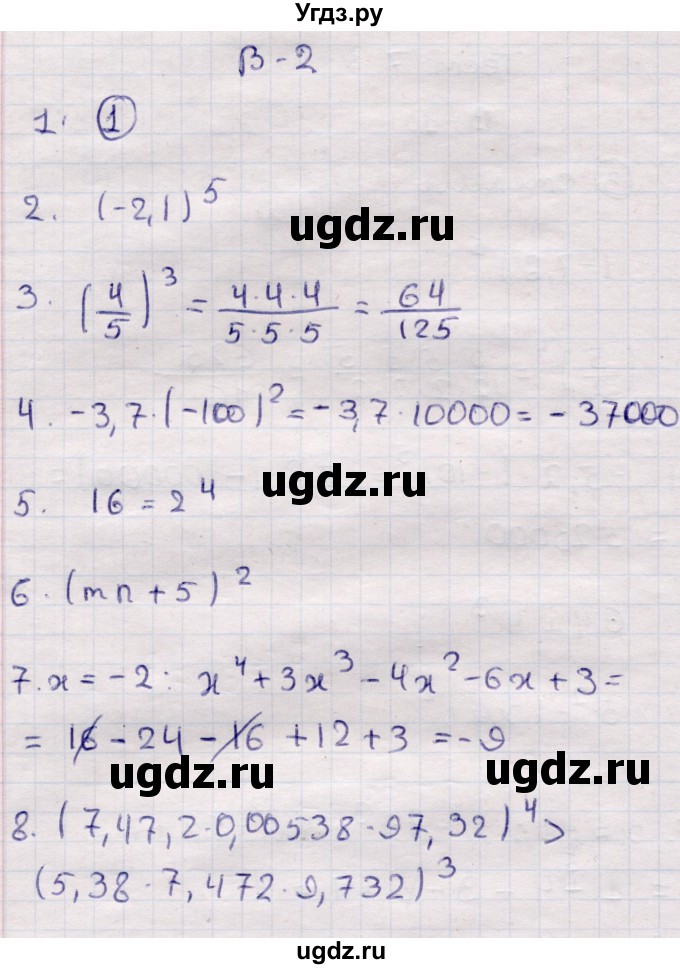 Угдз.ру
В-2
1. ①
2. (-2,1)^5
ugdz.ru
3. (4/5)^3 = 4·4·4/5·5·5 = 64/125
4. -3,7·(-100)^2 = -3,7·10000 = -37000
ugdz.ru
5. 16 = 2^4
6. (mn + 5)^2
7. x = -2: x^4 + 3x^3 - 4x^2 - 6x + 3 =
= 16 - 24 - 16 + 12 + 3 = -9
ugdz.ru ugdz.ru
8. (7,47,2·0,00538·97,32)^4 >
(5,38·7,472·9,732)^3
ugdz.ru